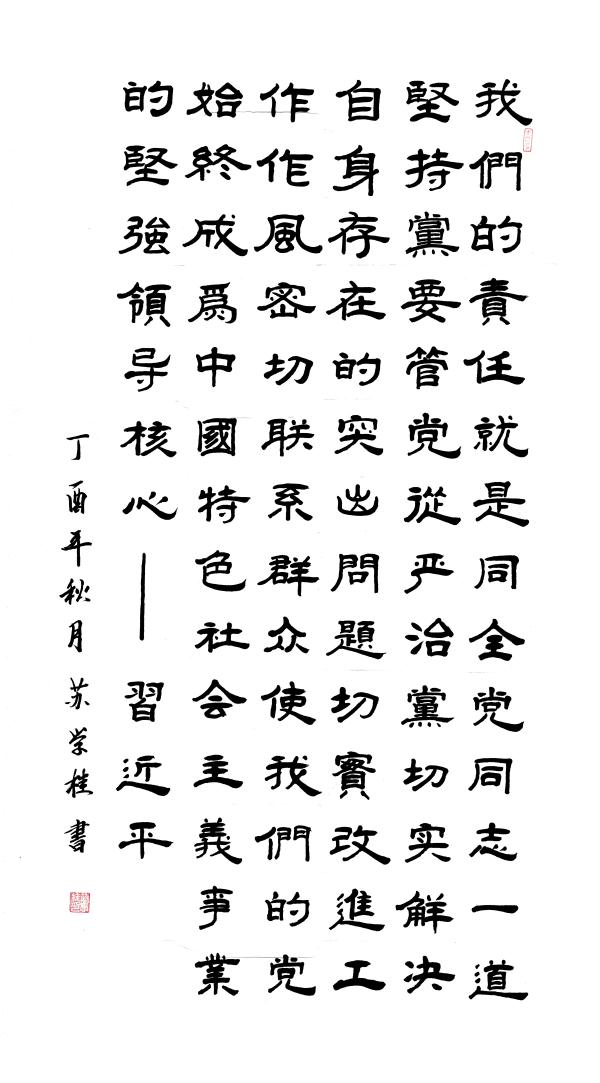 我們的責任就是同全党同志一道
堅持黨要管党從严治黨切实解决
自身存在的突出問題切實改進工
作作風密切联系群众使我們的党
始終成爲中國特色社会主義事業
的堅強領导核心——習近平
丁酉年秋月苏学桂書